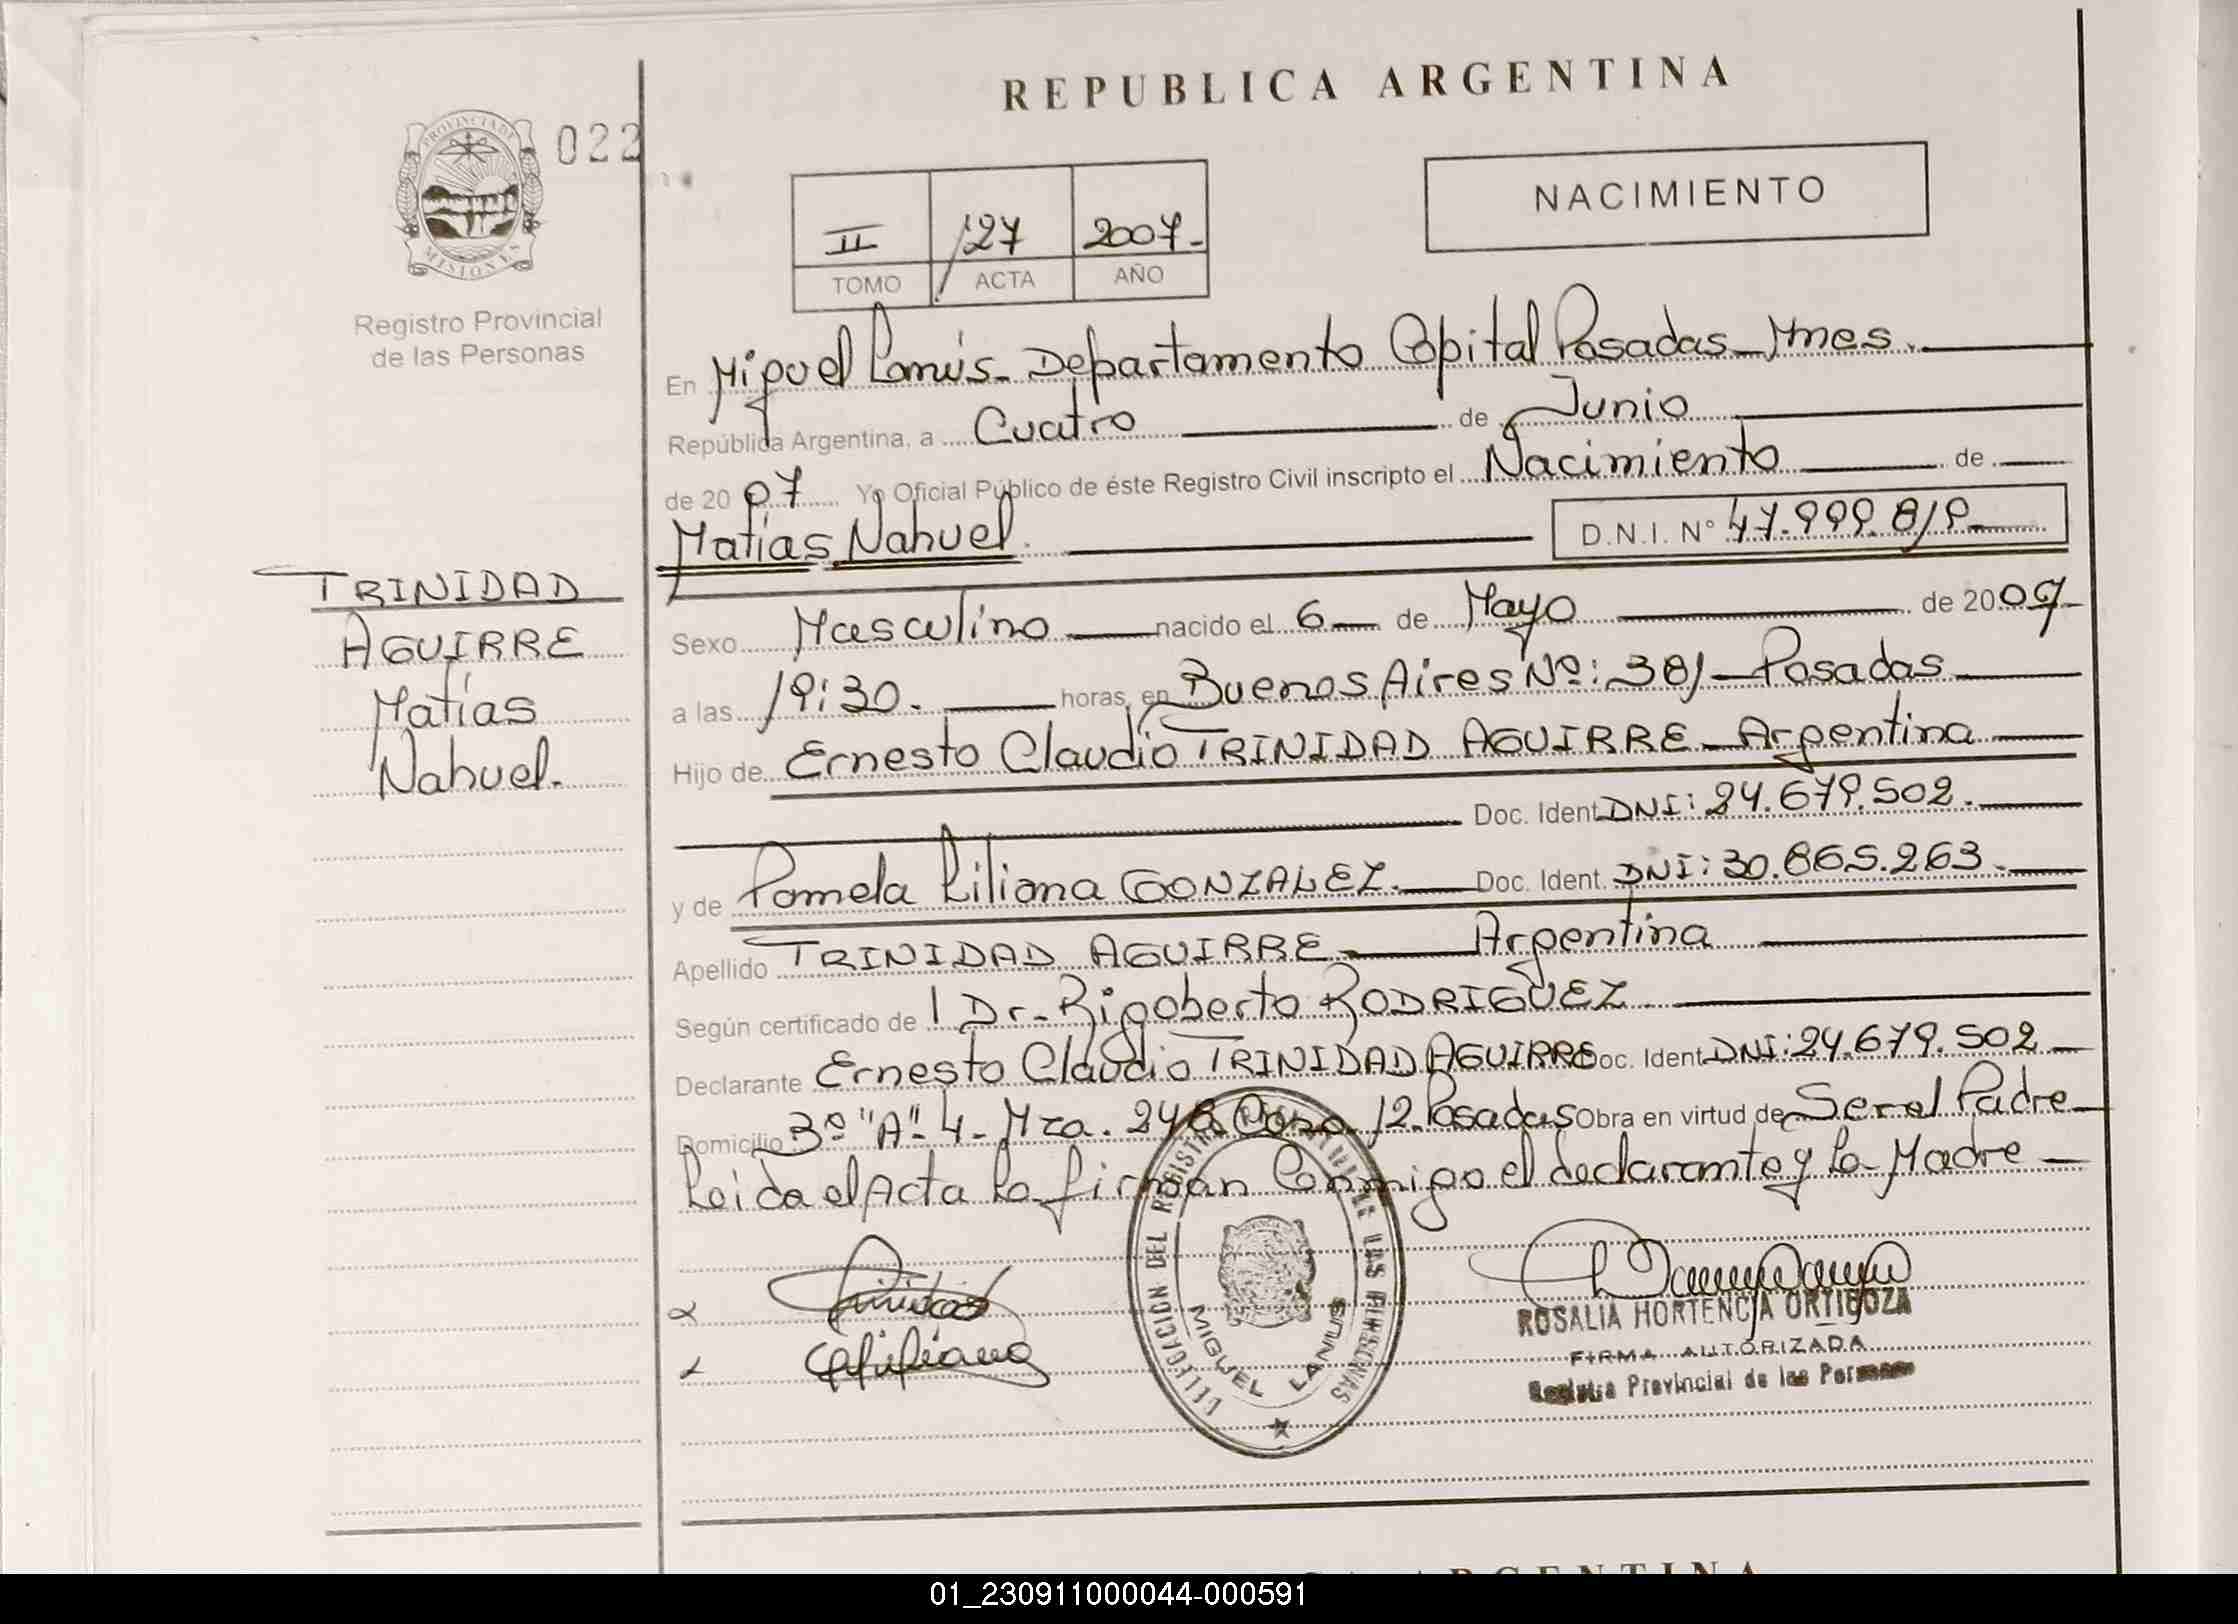 REPUBLICA ARGENTINA
PROVINCIA DE
MISIONES
022
NACIMIENTO
II 127 2007-
TOMO ACTA AÑO
Registro Provincial
de las Personas
En Miguel Lanús- Departamento Capital Posadas-Mnes.
República Argentina, a Cuatro de Junio
de 2007 Yo Oficial Público de éste Registro Civil inscripto el Nacimiento de
Matías Nahuel. D.N.I. Nº 47.999.819
TRINIDAD
AGUIRRE
Matías
Nahuel.
Sexo Masculino nacido el 6 de Mayo de 2007
a las 19:30. horas, en Buenos Aires Nº: 381-Posadas
Hijo de Ernesto Claudio TRINIDAD AGUIRRE-Argentina
Doc. Ident. DNI: 24.679.502.
y de Pamela Liliana GONZALEZ. Doc. Ident. DNI: 30.865.263.
Apellido TRINIDAD AGUIRRE Argentina
Según certificado de l Dr. Rigoberto RODRIGUEZ
Declarante Ernesto Claudio TRINIDAD AGUIRRE Doc. Ident. DNI: 24.679.502
Domicilio 3º "A"-4-Mza. 24 12.Posadas Obra en virtud de Ser el Padre
Leída el Acta la firman Conmigo el declarante y la Madre
DELEGACION DEL REGISTRO DE LAS PERSONAS
MIGUEL LANUS
ROSALIA HORTENCIA ORTIGOZA
FIRMA AUTORIZADA
Registro Provincial de las Personas
ARGENTINA
01_230911000044-000591